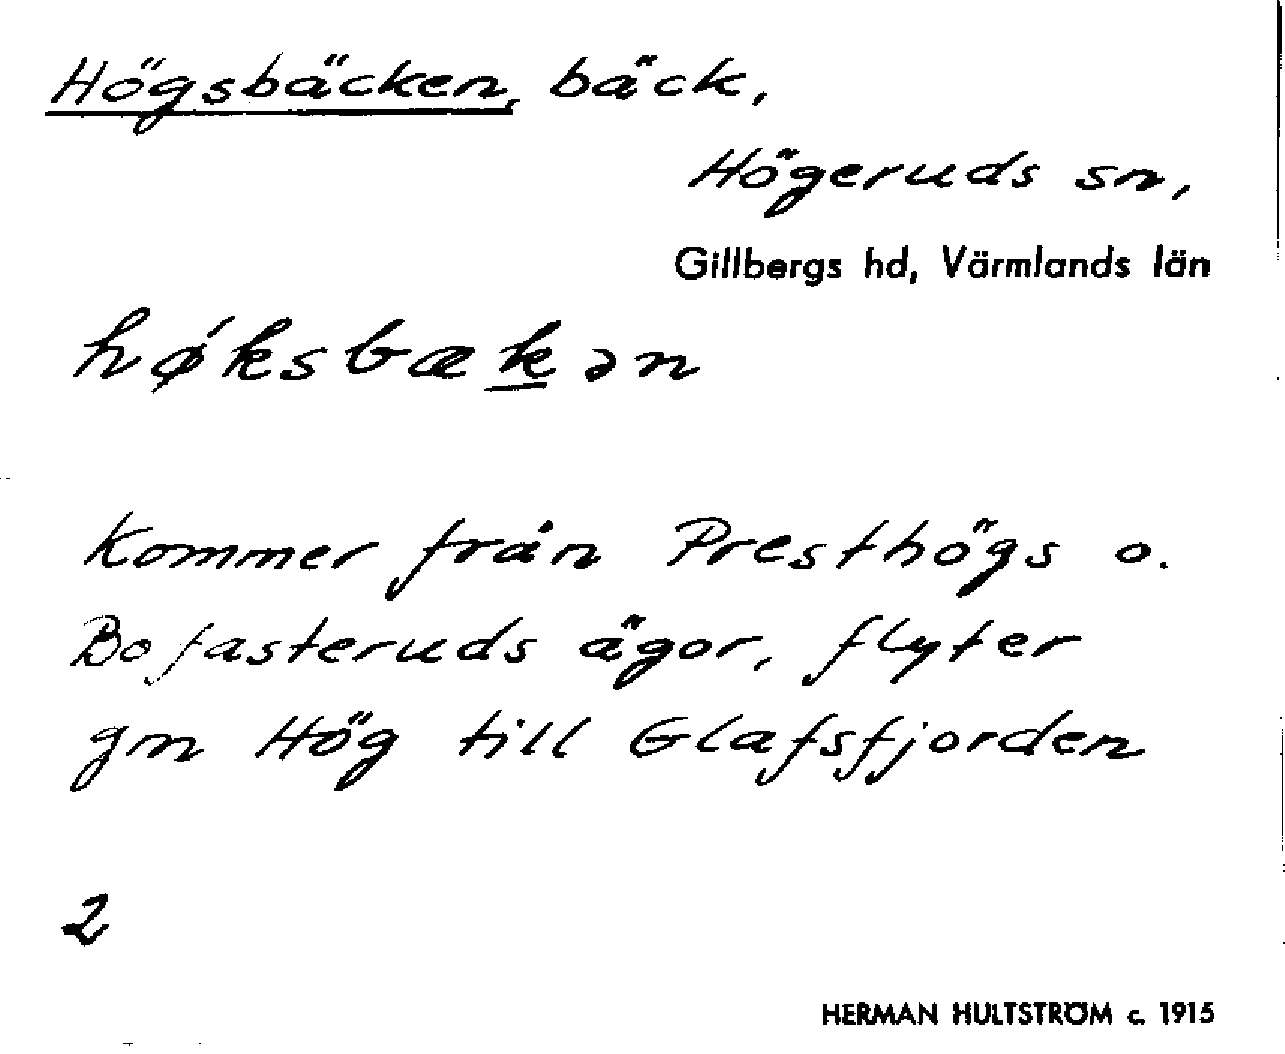 Högsbäcken, bäck,
Högeruds sn,
Gillbergs hd, Värmlands län
hǿksbæk̲ən
Kommer från Presthögs o.
Bofasteruds ägor, flyter
gm Hög till Glafsfjorden
2
HERMAN HULTSTRÖM c. 1915